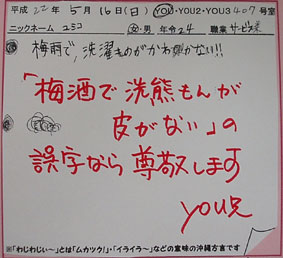 平成22年 5月16日(日) YOU・YOU2・YOU3 407号室
ニックネーム ユミコ 女・男 年令24 職業 サービス業
梅雨で、洗濯ものがかわかない!!
「梅酒で洗熊もんが
皮がない」の
誤字なら尊敬します
YOU兄
※「わじわじぃ~」とは「ムカツク!」・「イライラ~」などの意味の沖縄方言です